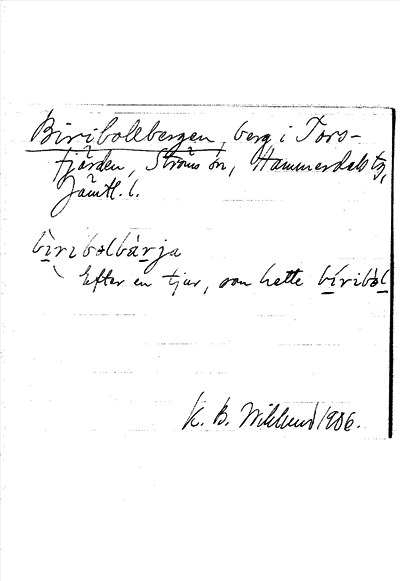 Biribollbergen, berg i Tors-
fjärden, Ströms sn, Hammerdals tg,
Jämtl. l.
bìribolbàrja
Efter en tjur, som hette bíribòl
K. B. Wiklund 1906.